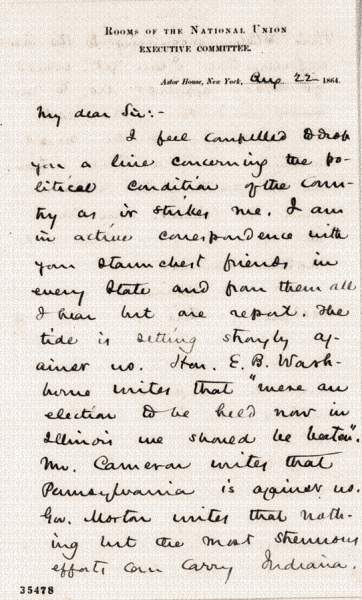 ROOMS OF THE NATIONAL UNION
EXECUTIVE COMMITTEE.
Astor House, New York, Aug 22 1864.
My dear Sir:-
I feel compelled to drop
you a line concerning the po-
litical condition of the Coun-
try as it strikes me. I am
in active correspondence with
your staunchest friends in
every State and from them all
I hear but one report. The
tide is setting strongly ag-
ainst us. Hon. E. B. Wash-
burne writes that "were an
election to be held now in
Illinois we should be beaten".
Mr. Cameron writes that
Pennsylvania is against us.
Gov. Morton writes that noth-
ing but the most strenuous
efforts can carry Indiana.
35478